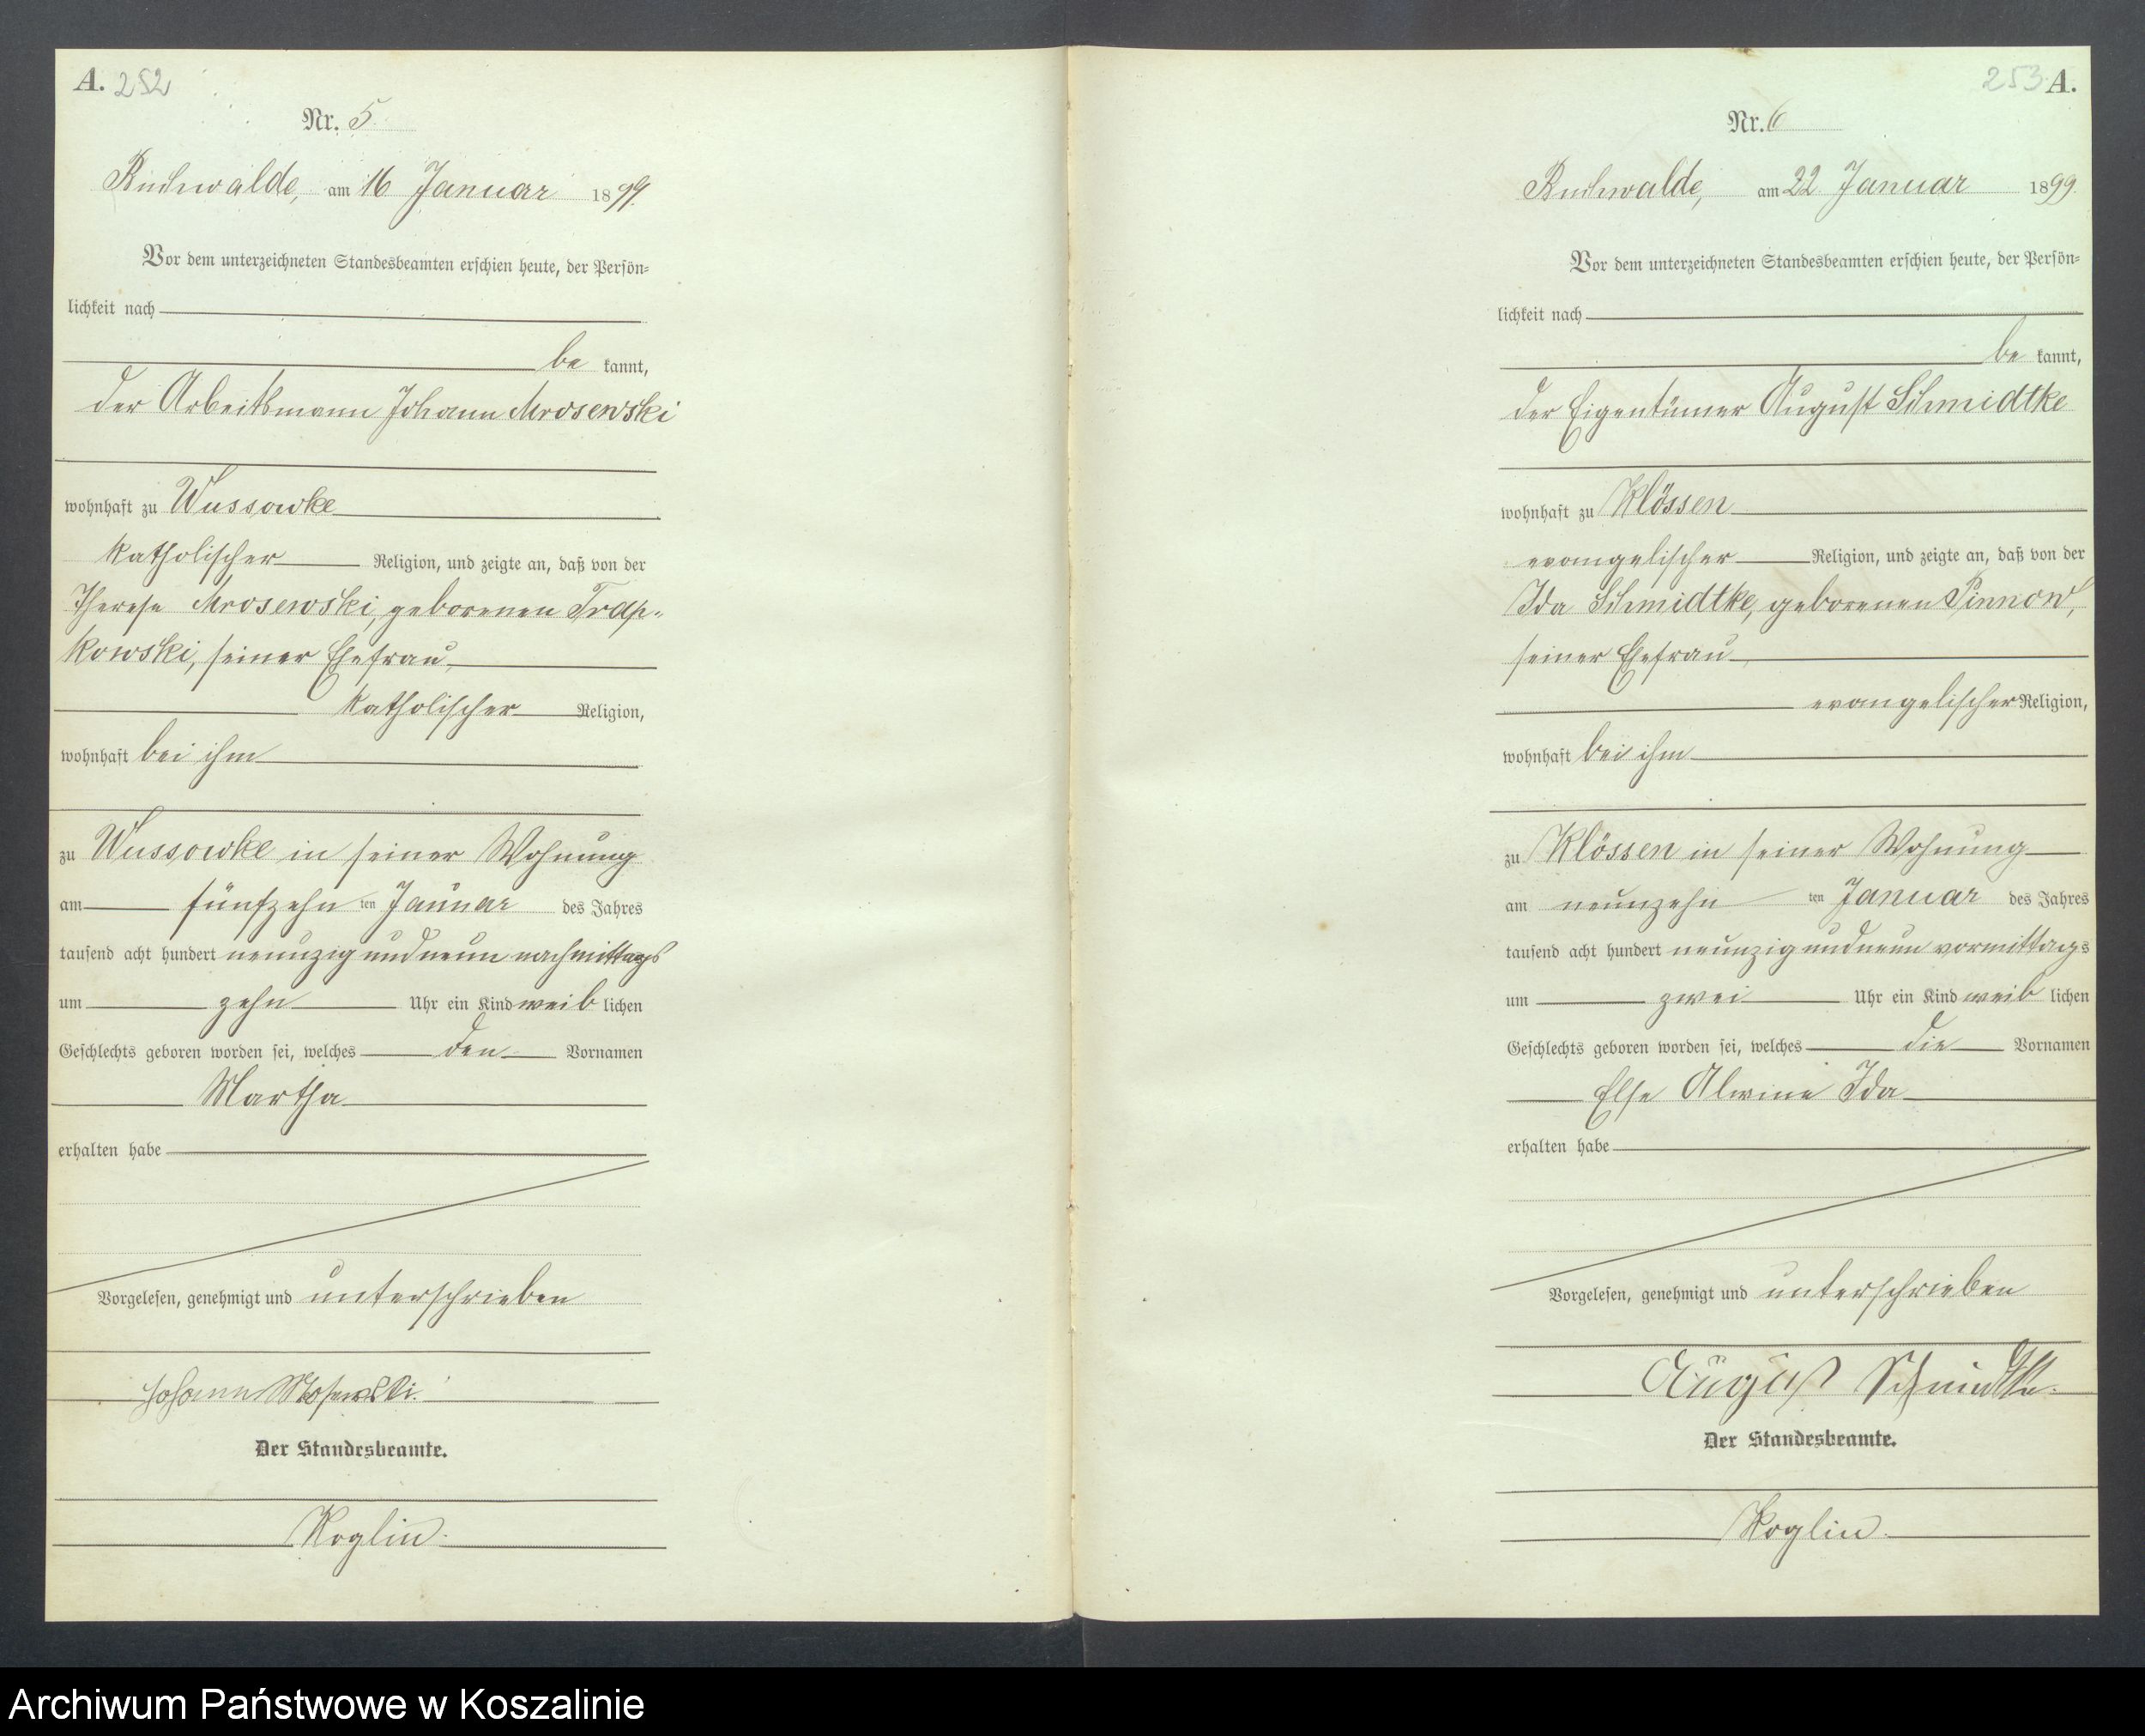 A. 252
Nr. 5
Buchwalde, am 16 Januar 1899.
Vor dem unterzeichneten Standesbeamten erschien heute, der Persön-
lichkeit nach
be kannt,
der Arbeitsmann Johann Mrosewski
wohnhaft zu Wussowke
katholischer Religion, und zeigte an, daß von der
Therese Mrosewski, geborenen Trap-
kowski, seiner Ehefrau,
katholischer Religion,
wohnhaft bei ihm
zu Wussowke in seiner Wohnung
am fünfzehn ten Januar des Jahres
tausend acht hundert neunzig und neun nachmittags
um zehn Uhr ein Kind weib lichen
Geschlechts geboren worden sei, welches den Vornamen
Martha
erhalten habe
Vorgelesen, genehmigt und unterschrieben
Johann Mrosewski.
Der Standesbeamte.
Koglin.
253 A.
Nr. 6
Buchwalde, am 22 Januar 1899.
Vor dem unterzeichneten Standesbeamten erschien heute, der Persön-
lichkeit nach
be kannt,
der Eigentümer August Schmidtke
wohnhaft zu Klössen
evangelischer Religion, und zeigte an, daß von der
Ida Schmidtke, geborenen Pinnow,
seiner Ehefrau
evangelischer Religion,
wohnhaft bei ihm
zu Klössen in seiner Wohnung
am neunzehn ten Januar des Jahres
tausend acht hundert neunzig und neun vormittags
um zwei Uhr ein Kind weib lichen
Geschlechts geboren worden sei, welches die Vornamen
Else Alwine Ida
erhalten habe
Vorgelesen, genehmigt und unterschrieben
August Schmidtke.
Der Standesbeamte.
Koglin.
Archiwum Państwowe w Koszalinie